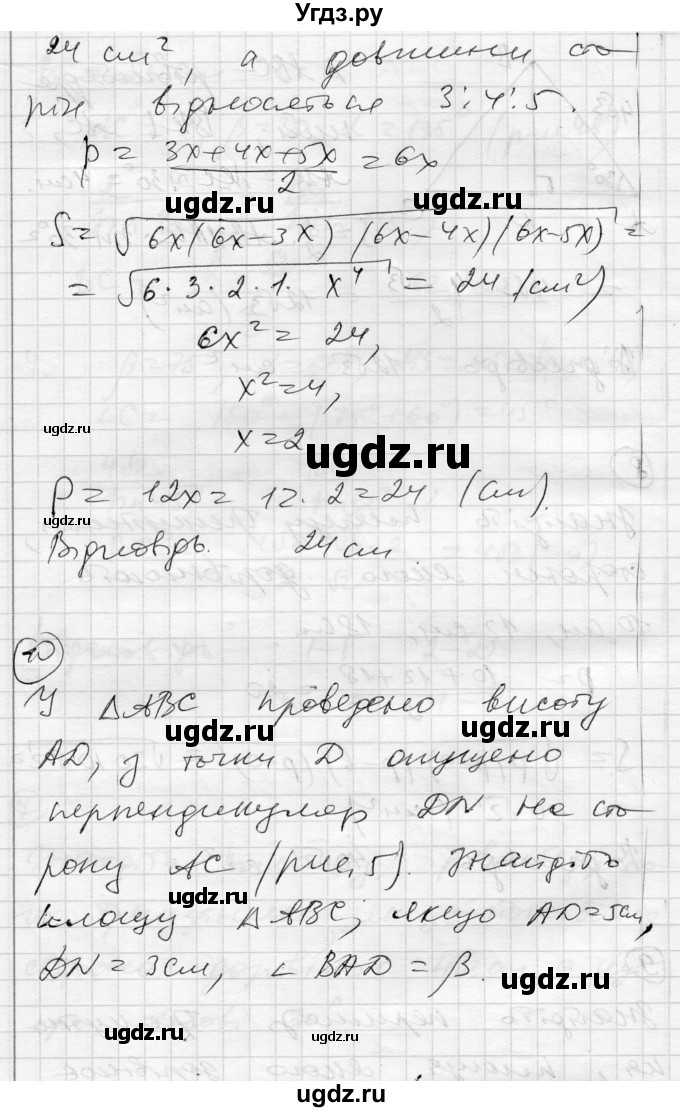 Угдз.ру
24 см², а довжини сто
рін відносяться 3:4:5.
p = (3x+4x+5x)/2 = 6x
ugdz.ru ugdz.ru
S = √(6x(6x-3x)(6x-4x)(6x-5x)) =
= √(6·3·2·1·x⁴) = 24 (см²)
6x² = 24,
x² = 4,
ugdz.ru ugdz.ru
x = 2
ugdz.ru
P = 12x = 12·2 = 24 (см).
ugdz.ru
Відповідь. 24 см
10
У △ABC проведено висоту
ugdz.ru ugdz.ru
AD, з точки D опущено
перпендикуляр DN на сто
рону AC (рис. 5). Знайдіть
ugdz.ru
площу △ABC, якщо AD=5см,
DN = 3см, ∠BAD = β.
ugdz.ru
ugdz.ru ugdz.ru
ugdz.ru